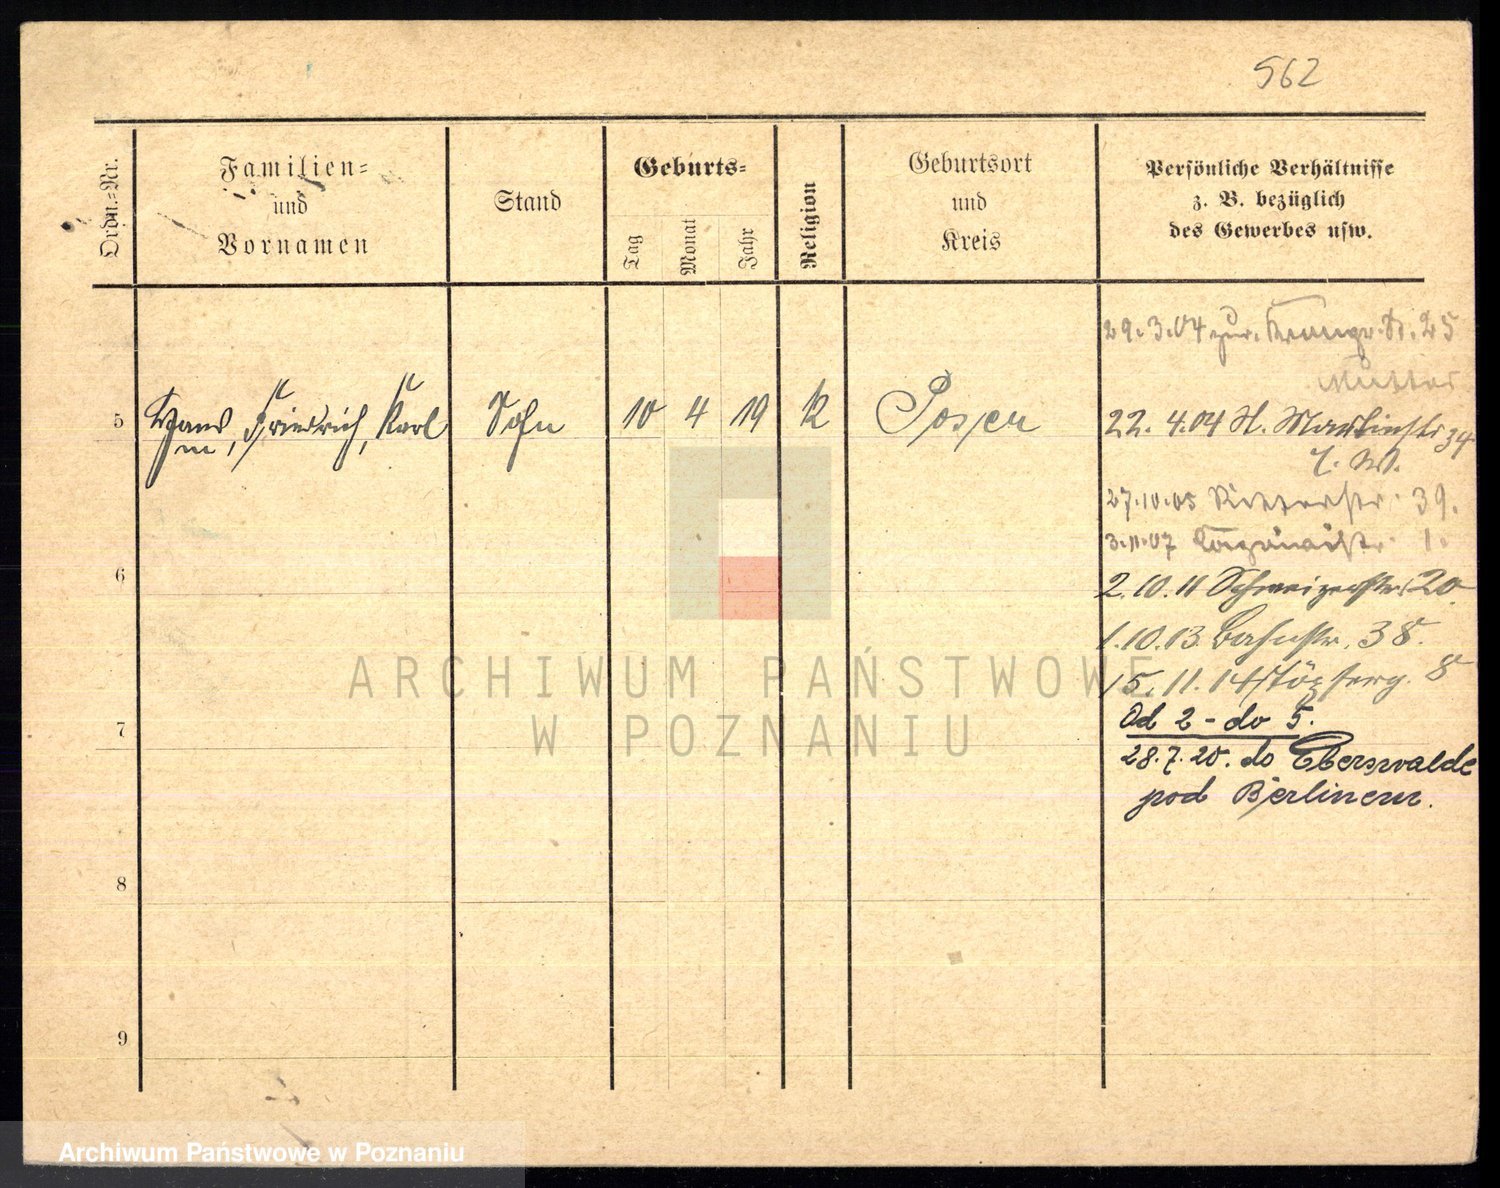 562
Ordn.-Nr.
Familien-
und
Vornamen
Stand
Geburts-
Tag
Monat
Jahr
Religion
Geburtsort
und
Kreis
Persönliche Verhältnisse
z. B. bezüglich
des Gewerbes usw.
29.3.04 zur. St. 25
Mutter
5 Hans, Friedrich, Karl Sohn 10 4 19 K Posen
22. 4.04 St. Martinstr 34
27.10.05 Ritterstr. 39.
3.11.07 1.
6
2.10.11 Schweizerstr. 20
1.10.13. Bahnstr. 38.
15.11.14 8
7
Od 2 - do 5.
28.7.20. do Eberswalde
pod Berlinem.
8
9
ARCHIWUM PAŃSTWOWE
W POZNANIU
Archiwum Państwowe w Poznaniu